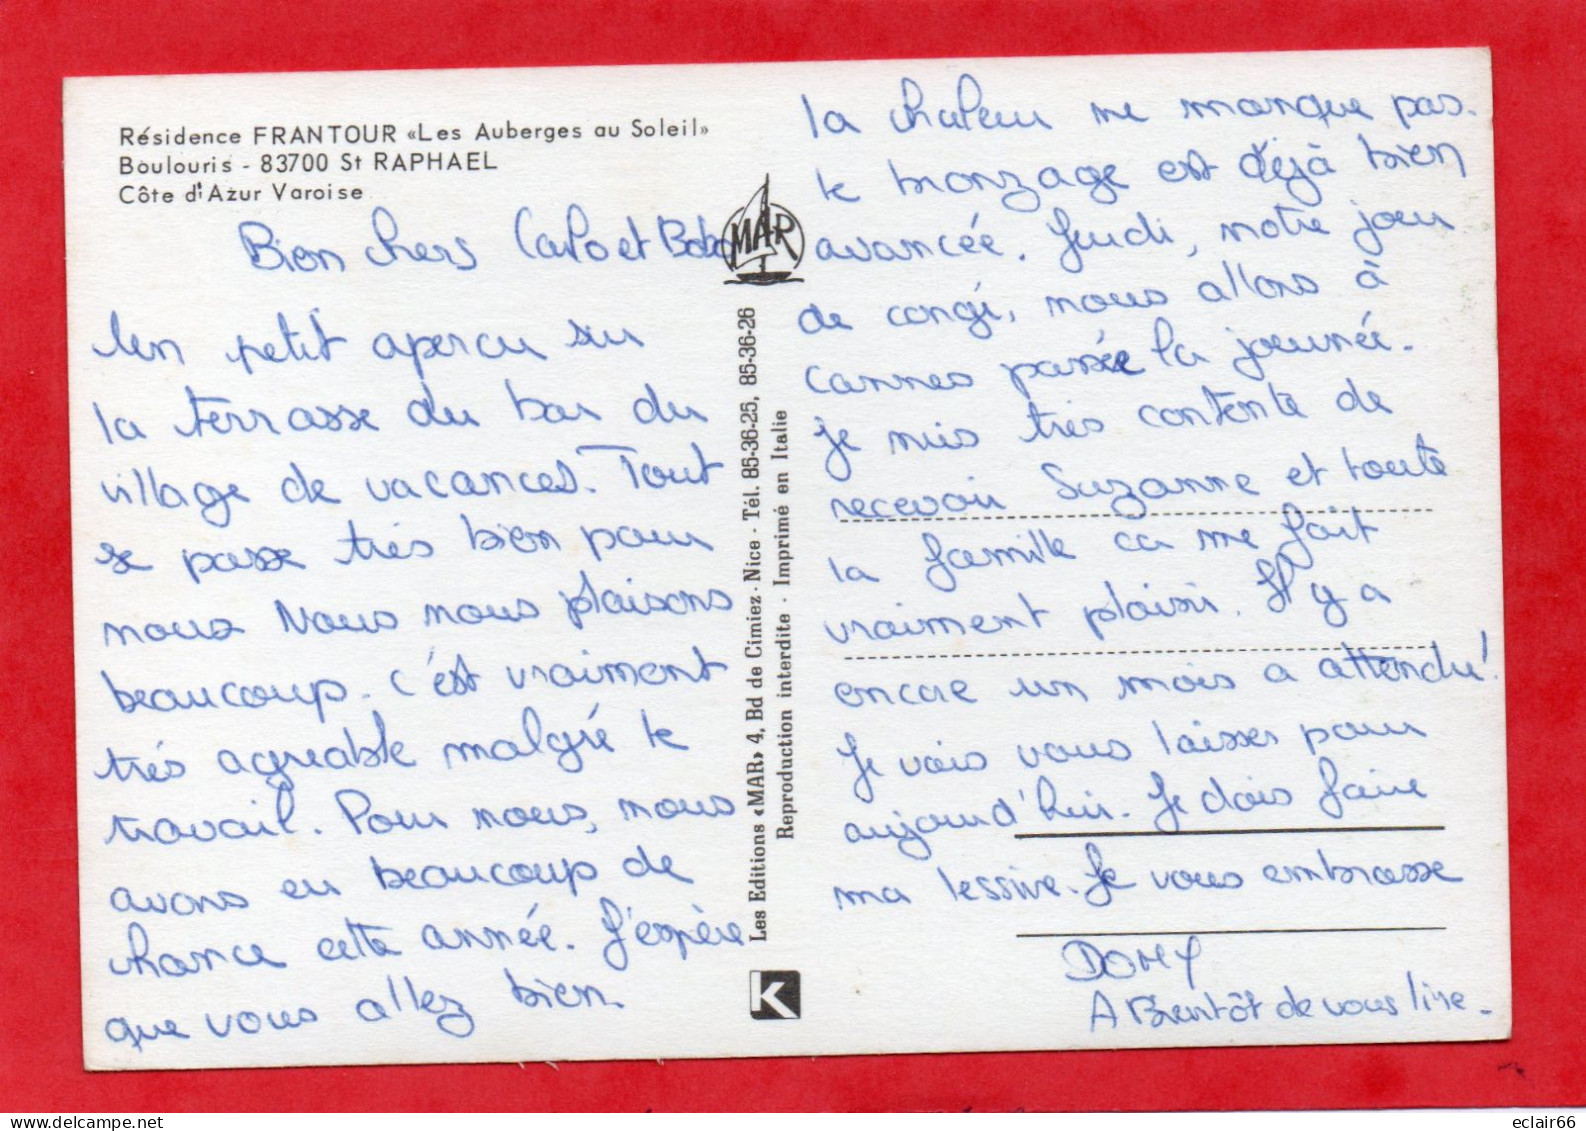 Résidence FRANTOUR «Les Auberges au Soleil»
Boulouris - 83700 St RAPHAEL
Côte d'Azur Varoise
Bien chers Calo et Bobo
Un petit aperçu sur
la terrasse du bar du
village de vacances. Tout
se passe très bien pour
nous Nous nous plaisons
beaucoup. c'est vraiment
très agréable malgré le
travail. Pour nous, nous
avons eu beaucoup de
chance cette année. J'espère
que vous allez bien.
MAR
Les Editions «MAR» 4, Bd de Cimiez - Nice - Tél. 85-36-25, 85-36-26
Reproduction interdite - Imprimé en Italie
K
la chaleur ne manque pas.
le bronzage est déjà bien
avancée. Jeudi, notre jour
de congé, nous allons à
cannes passée la journée.
je suis très contente de
recevoir Suzanne et toute
la famille ca me fait
vraiment plaisir. Il y a
encore un mois a attendu!
Je vais vous laisser pour
aujourd'hui. Je dois faire
ma lessive. Je vous embrasse
DOMY
A Bientôt de vous lire.
delcampe.net
eclair66